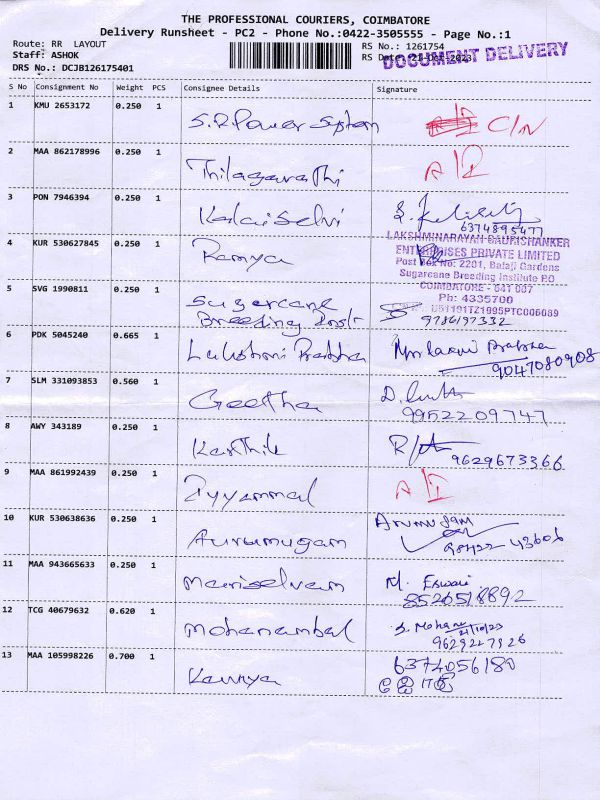 THE PROFESSIONAL COURIERS, COIMBATORE
Delivery Runsheet - PC2 - Phone No.:0422-3505555 - Page No.:1
Route: RR LAYOUT
Staff: ASHOK
DRS No.: DCJB126175401
RS No.: 1261754
RS Date: 21-Oct-2023
DOCUMENT DELIVERY
S No Consignment No Weight PCS Consignee Details Signature
1 KMU 2653172 0.250 1 S.R. Power System C/N
2 MAA 862178996 0.250 1 Thilagavathi
3 PON 7946394 0.250 1 Kalaiselvi
6374895477
4 KUR 530627845 0.250 1 Ramya
LAKSHMINARAYAN GAURISHANKER
ENTERPRISES PRIVATE LIMITED
Post Box No: 2201, Balaji Gardens
Sugarcane Breeding Institute P.O
COIMBATORE - 641 007
Ph: 4335700
U51191TZ1995PTC006089
5 SVG 1990811 0.250 1 Sugarcane
Breeding Inst
9786197332
6 PDK 5045240 0.665 1 Lakshmi Prabha
9047080908
7 SLM 331093853 0.560 1 Geetha
9952209747
8 AWY 343189 0.250 1 Karthik
9629673366
9 MAA 861992439 0.250 1 Iyyammal
10 KUR 530638636 0.250 1 Aurumugam Arumugam
98422 43606
11 MAA 943665633 0.250 1 Mariselvam M. Eswari
8526518892
12 TCG 40679632 0.620 1 Mohanambal S. Mohana
21/10/23
9629247926
13 MAA 105998226 0.700 1 Kavya 6374056180